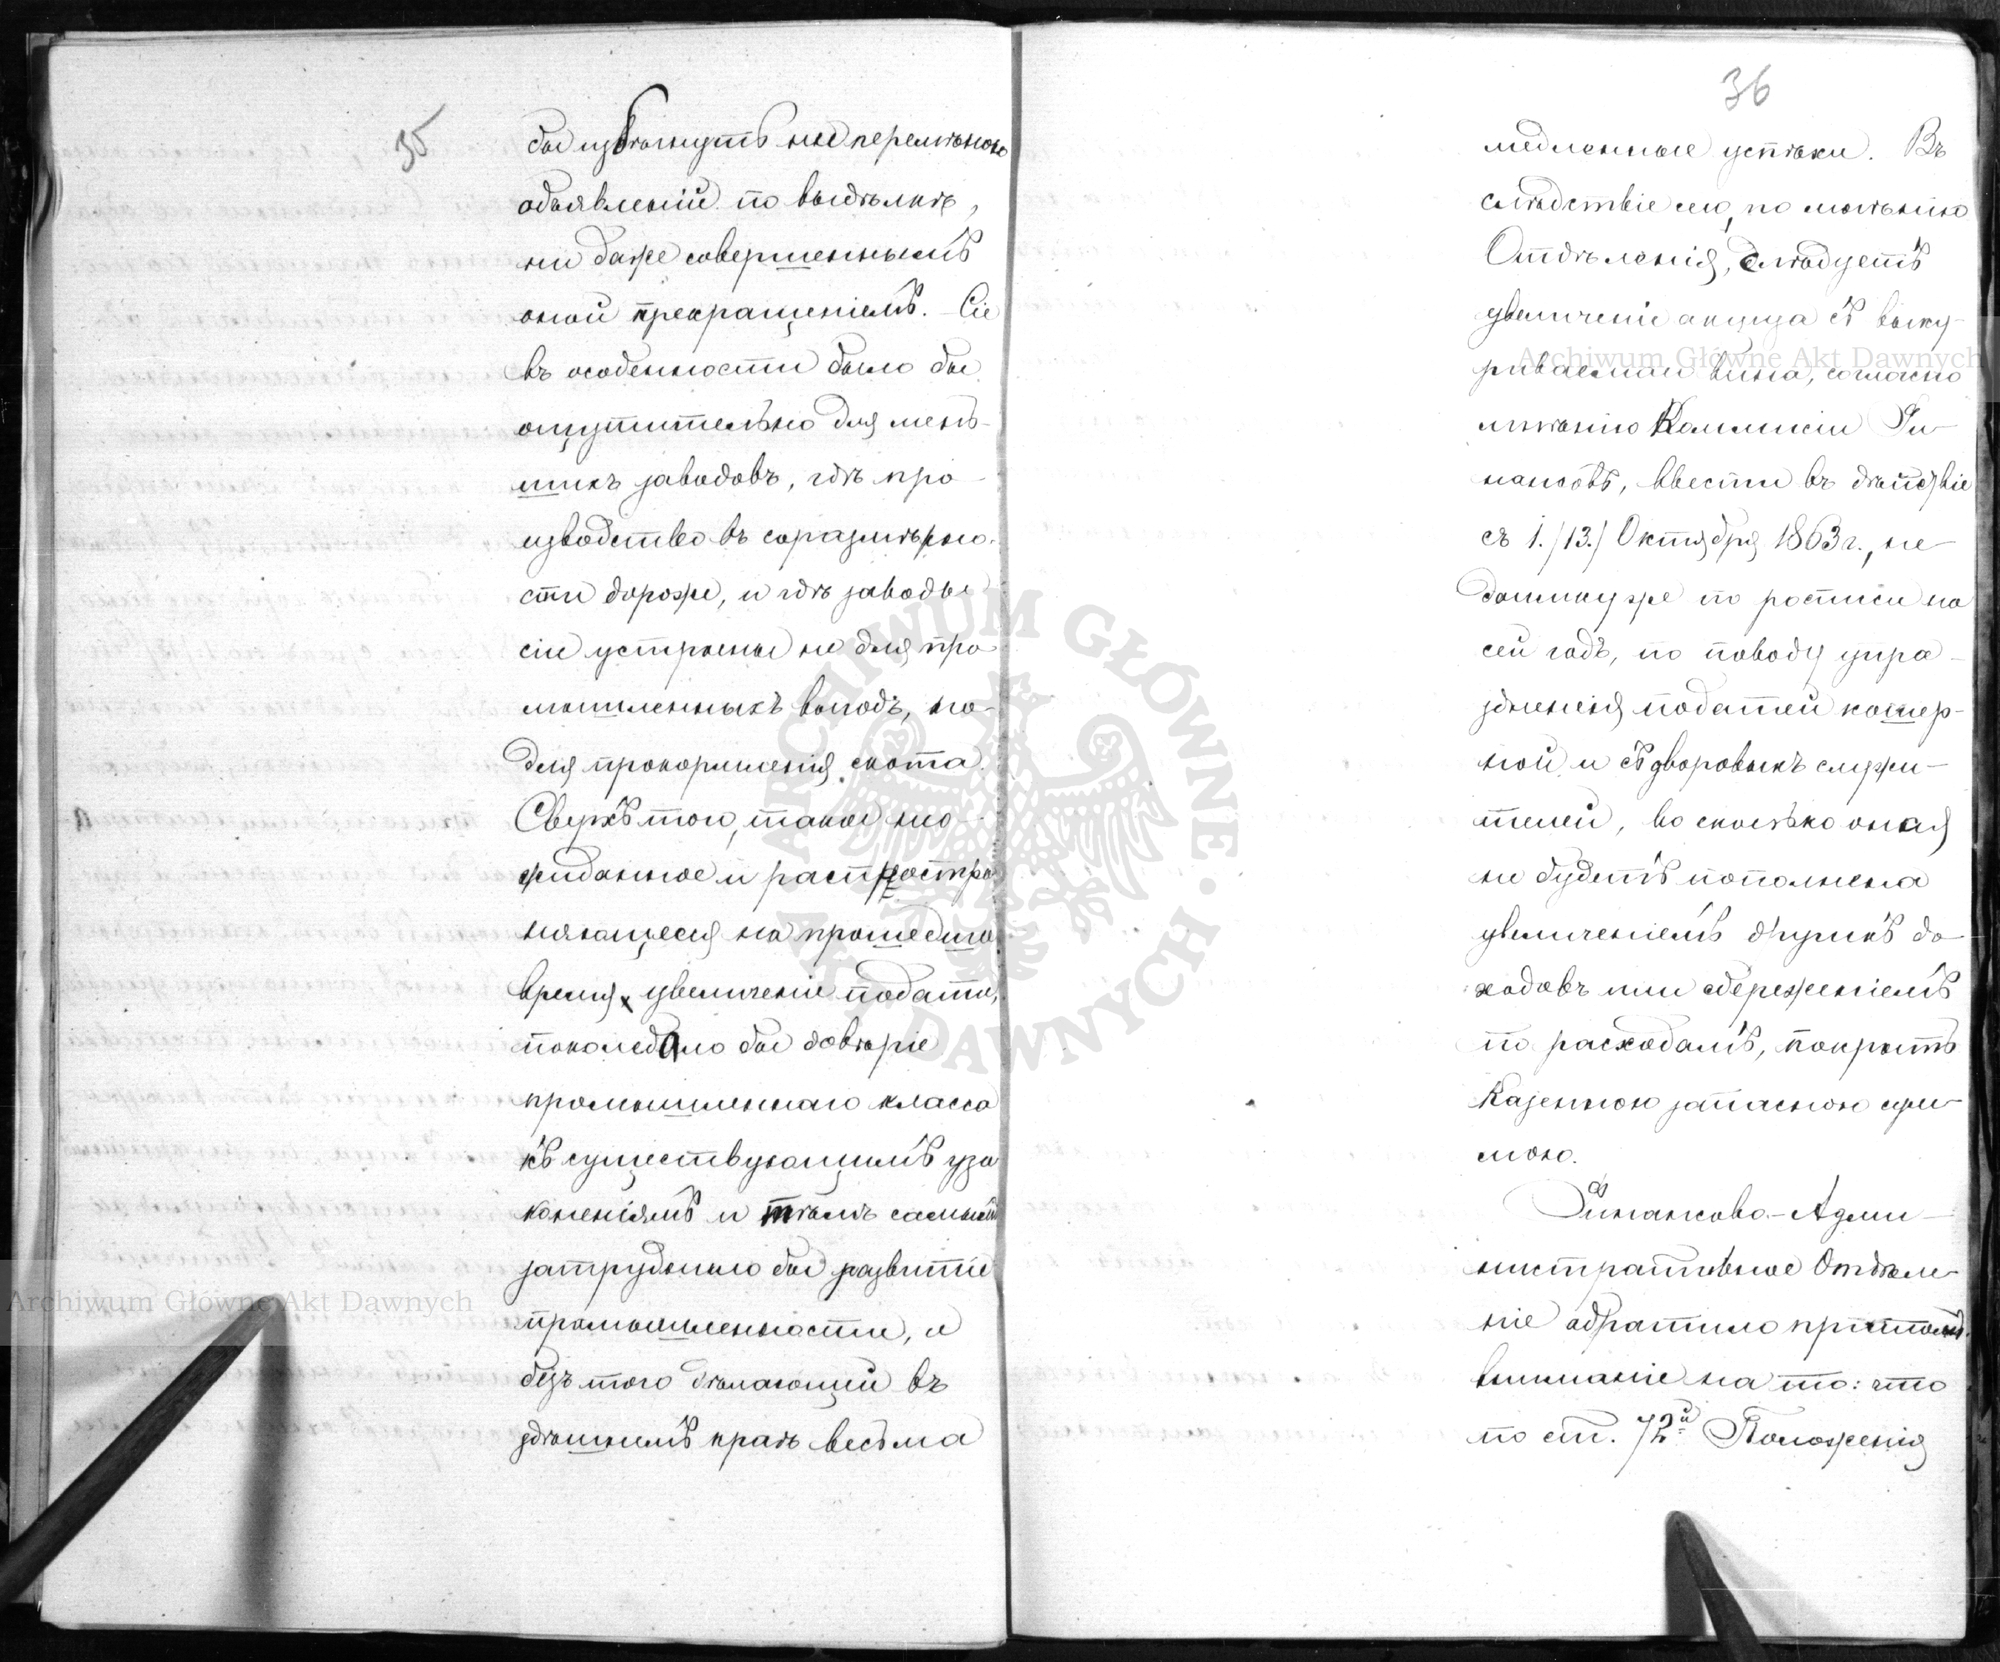 35
бы избѣгнуть ни перемѣною
объявленій по выдѣлкѣ,
ни даже совершеннымъ
оной прекращеніемъ. Сіе
въ особенности было бы
ощутительно для мень-
шихъ заводовъ, гдѣ про-
изводство въ соразмѣрно-
сти дороже, и гдѣ заводы
сіи устроены не для про-
мышленныхъ выгодъ, но
для прокормленія скота.
Сверхъ того, такое нео-
жиданное и распростра
няющееся на прошедшее
время увеличеніе подати,
поколебало бы довѣріе
промышленнаго класса
къ существующимъ уза
коненіямъ и тѣмъ самымъ
затруднило бы развитіе
промышленности, и
безъ того дѣлающей въ
здѣшнемъ краѣ весьма
36
медленные успѣхи. Въ
слѣдствіе сего, по мнѣнію
Отдѣленія, слѣдуетъ
увеличеніе акциза съ выку-
риваемаго вина, согласно
мнѣнію Коммисіи Фи-
нансовъ, ввести въ дѣйствіе
съ 1./13./ Октября 1863 г., не
доимку же по росписи на
сей годъ, по поводу упра-
здненія податей кошер-
ной и съ дворовыхъ служи-
телей, во сколько оная
не будетъ пополнена
увеличеніемъ другихъ до-
ходовъ или сбереженіемъ
по расходамъ, покрыть
Казенною запасною сум-
мою.
Финансово-Адми-
нистративное Отдѣле-
ніе обратило притомъ
вниманіе на то: что
по ст. 72й Положенія
Archiwum Główne Akt Dawnych
Archiwum Główne Akt Dawnych
ARCHIWUM GŁÓWNE AKT DAWNYCH